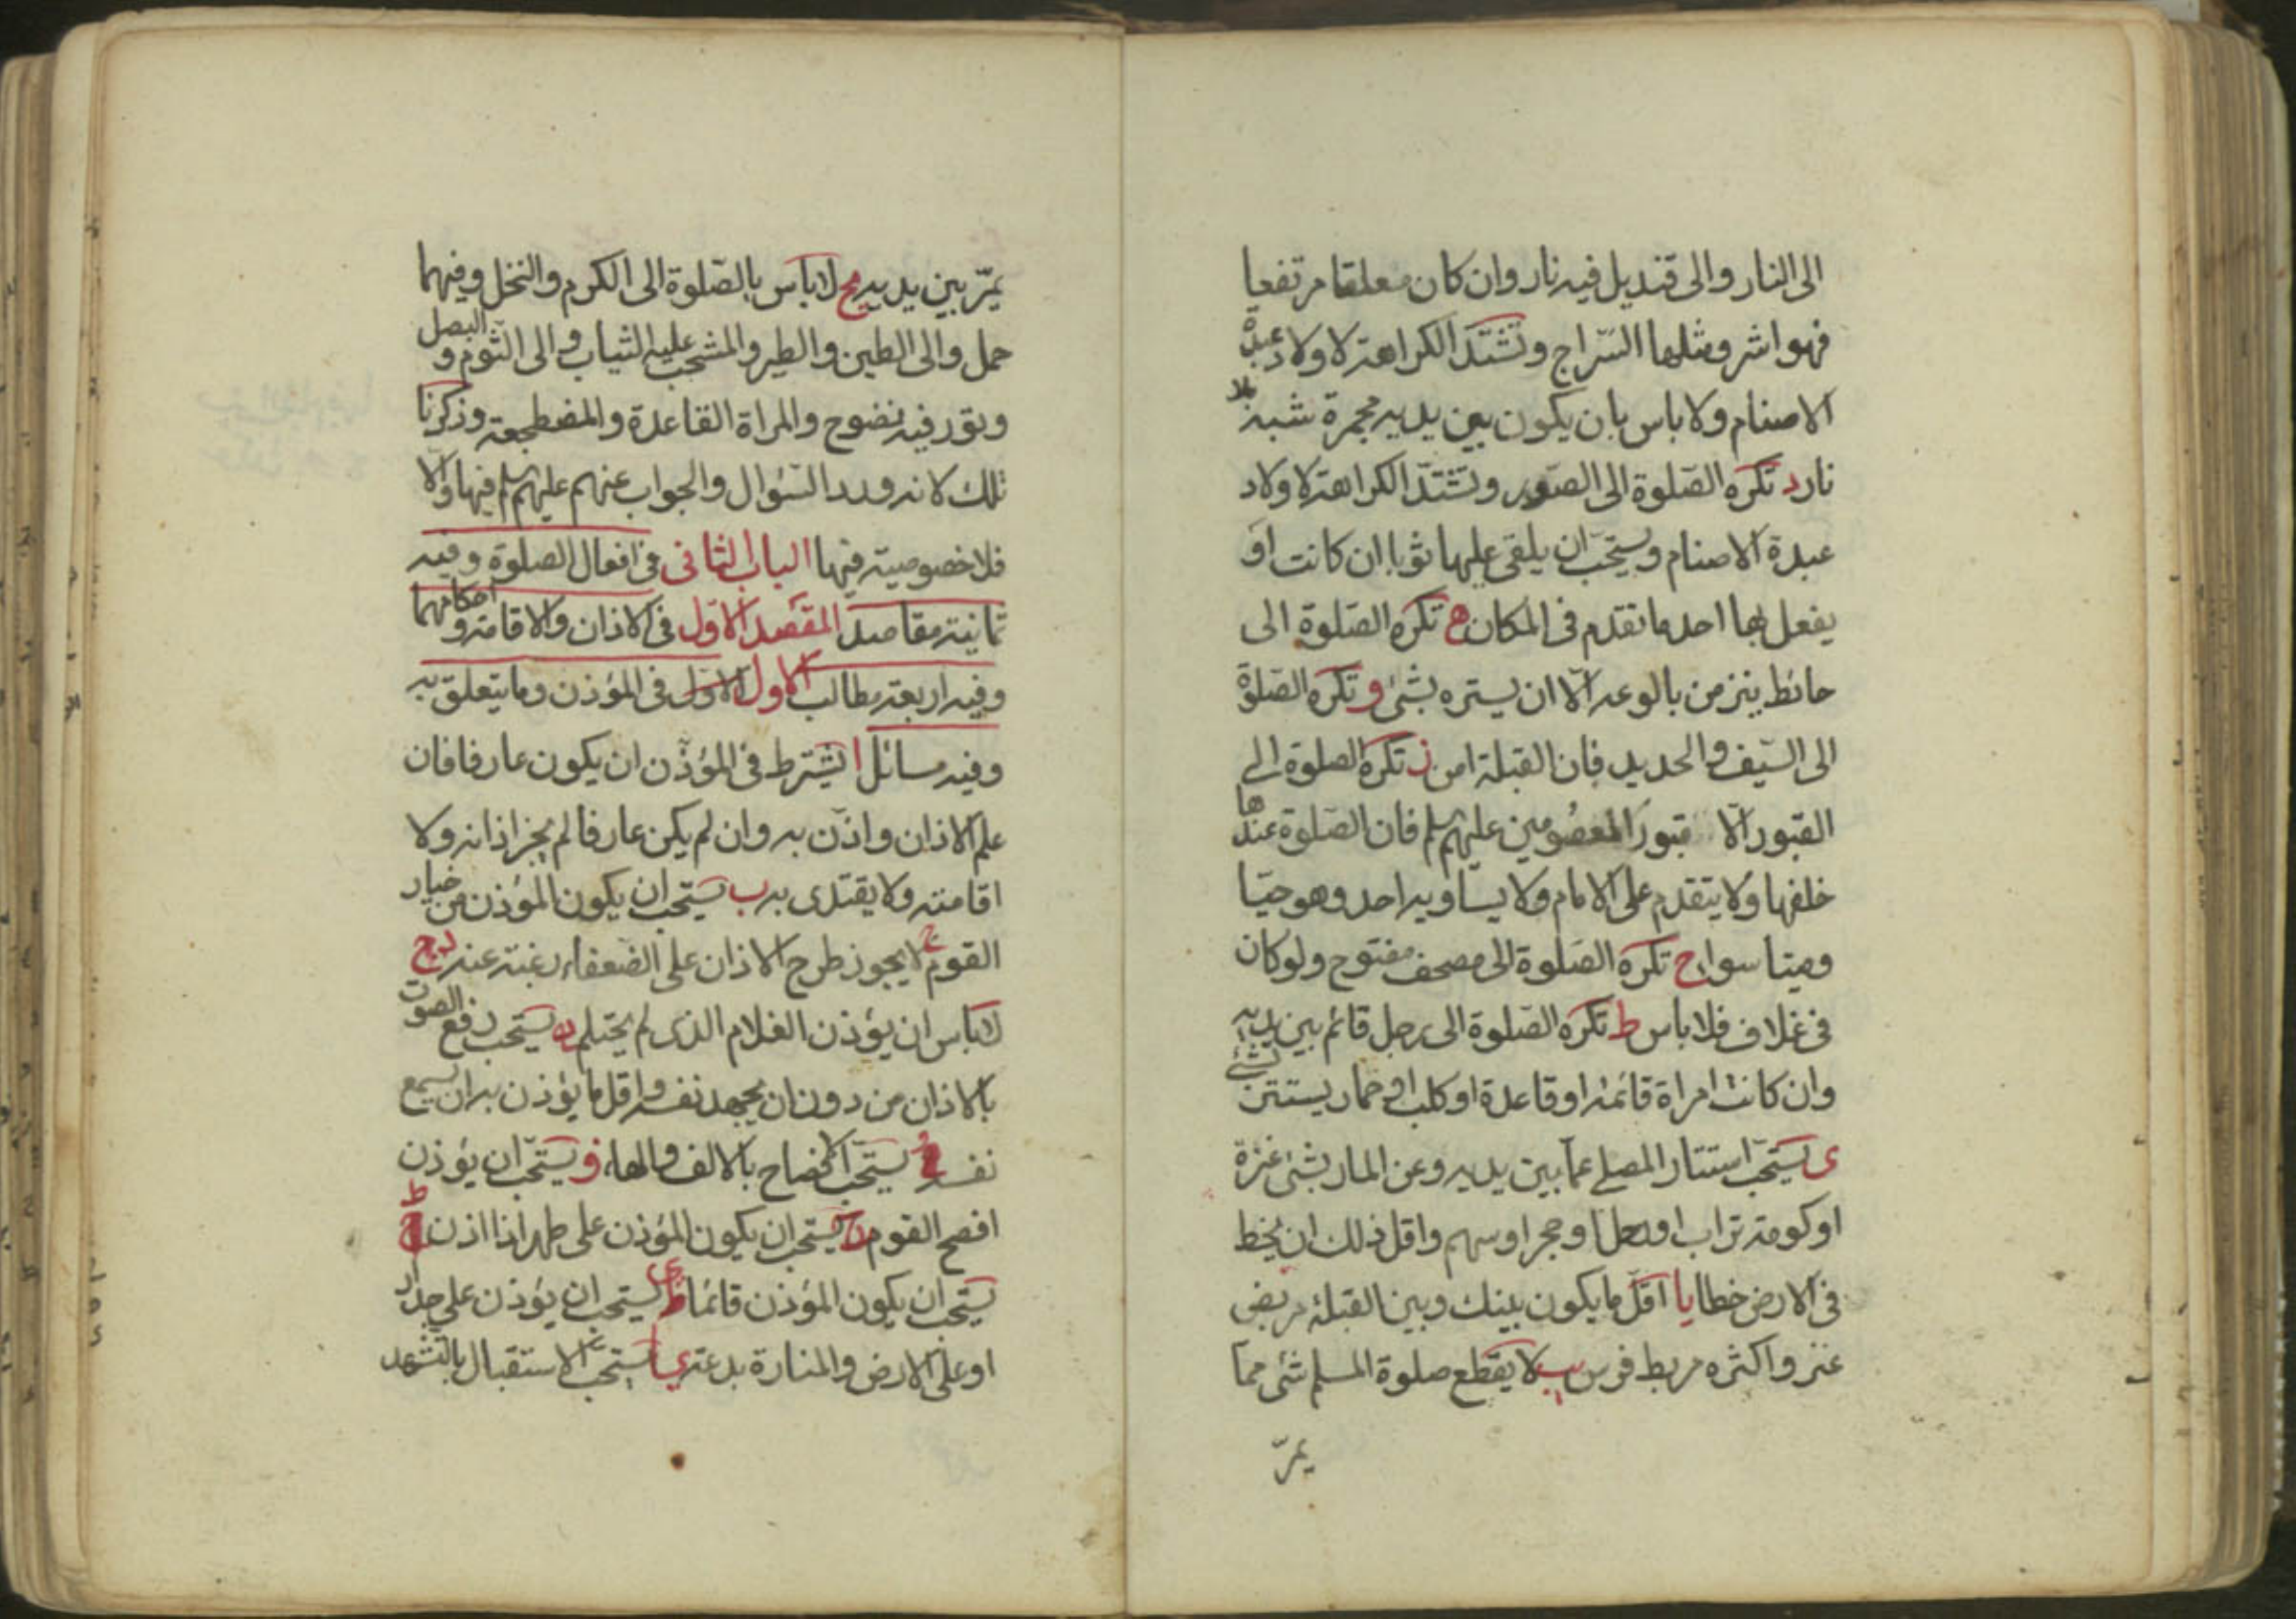 الى النار والى قنديل فيه نار وان كان معلقا مرتفعا
فهو اشر ومثلها السّراج وتشتدّ الكراهة لاولاد عبدة
الاصنام ولا باس بان يكون بين يديه مجمرة شبه بلا
نار د تكره الصّلوة الى الصّور وتشتدّ الكراهة لاولاد
عبدة الاصنام ويستحبّ ان يلقى عليها ثوبا ان كانت او
يفعل بها احد ما تقدم فى المكان ه تكره الصّلوة الى
حائط ينز من بالوعه الّا ان يستره بشئ و تكره الصّلوة
الى السّيف والحديد فان القبلة امن ز تكره الصلوة الى
القبور الّا قبور المعصومين عليهم سلم فان الصّلوة عندها
خلفها ولا يتقدم على الامام ولا يساويه احد وهو حيّا
وميتا سواء ح تكره الصّلوة الى مصحف مفتوح ولو كان
فى غلاف فلا باس ط تكره الصّلوة الى رجل قائم بين يديه
وان كانت امراة قائمة او قاعدة او كلب او حمار يستتر بشئ
ى يستحبّ استتار المصلى عمّا بين يديه وعن المار بشئ عنزة
او كومة تراب او رحل او حجر او سهم واقل ذلك ان يخط
فى الارض خطا يا اقلّ ما يكون بينك وبين القبلة مربض
عنز واكثره مربط فرس يب لا يقطع صلوة المسلم شئ ممّا
يمرّ
يمرّ بين يديه يج لا باس بالصّلوة الى الكرم والنخل وفيهما
حمل والى الطين والطير والمشجب عليه الثياب والى الثوم والبصل
وتور فيه نضوح والمراة القاعدة والمضطجعة وذكرنا
تلك لانه ورد السّؤال والجواب عنهم عليهم سلم فيها والّا
فلا خصوصية فيها الباب الثانى فى افعال الصلوة وفيه
ثمانية مقاصد المقصد الاوّل فى الاذان والاقامة واحكامهما
وفيه اربعة مطالب الاول الاوّل فى المؤذن وما يتعلق به
وفيه مسائل ا يشترط فى المؤذّن ان يكون عارفا فان
علم الاذان واذّن به وان لم يكن عارفا لم يجز اذانه ولا
اقامته ولا يقتدى به ب يستحب ان يكون المؤذن من خيار
القوم ج لا يجوز طرح الاذان على الضعفاء رغبة عنه د
لا باس ان يؤذن الغلام الذى لم يحتلم ه يستحب رفع الصوت
بالاذان من دون ان يجهد نفسه واقل ما يؤذن به ان يسمع
نفسه و يستحب الافصاح بالالف والهاء ز يستحبّ ان يؤذن
افصح القوم ح يستحب ان يكون المؤذن على طهر اذا اذن ط
يستحب ان يكون المؤذن قائما ى يستحب ان يؤذن على جدار
او على الارض والمنارة بدعة يا يستحبّ الاستقبال بالتشهد